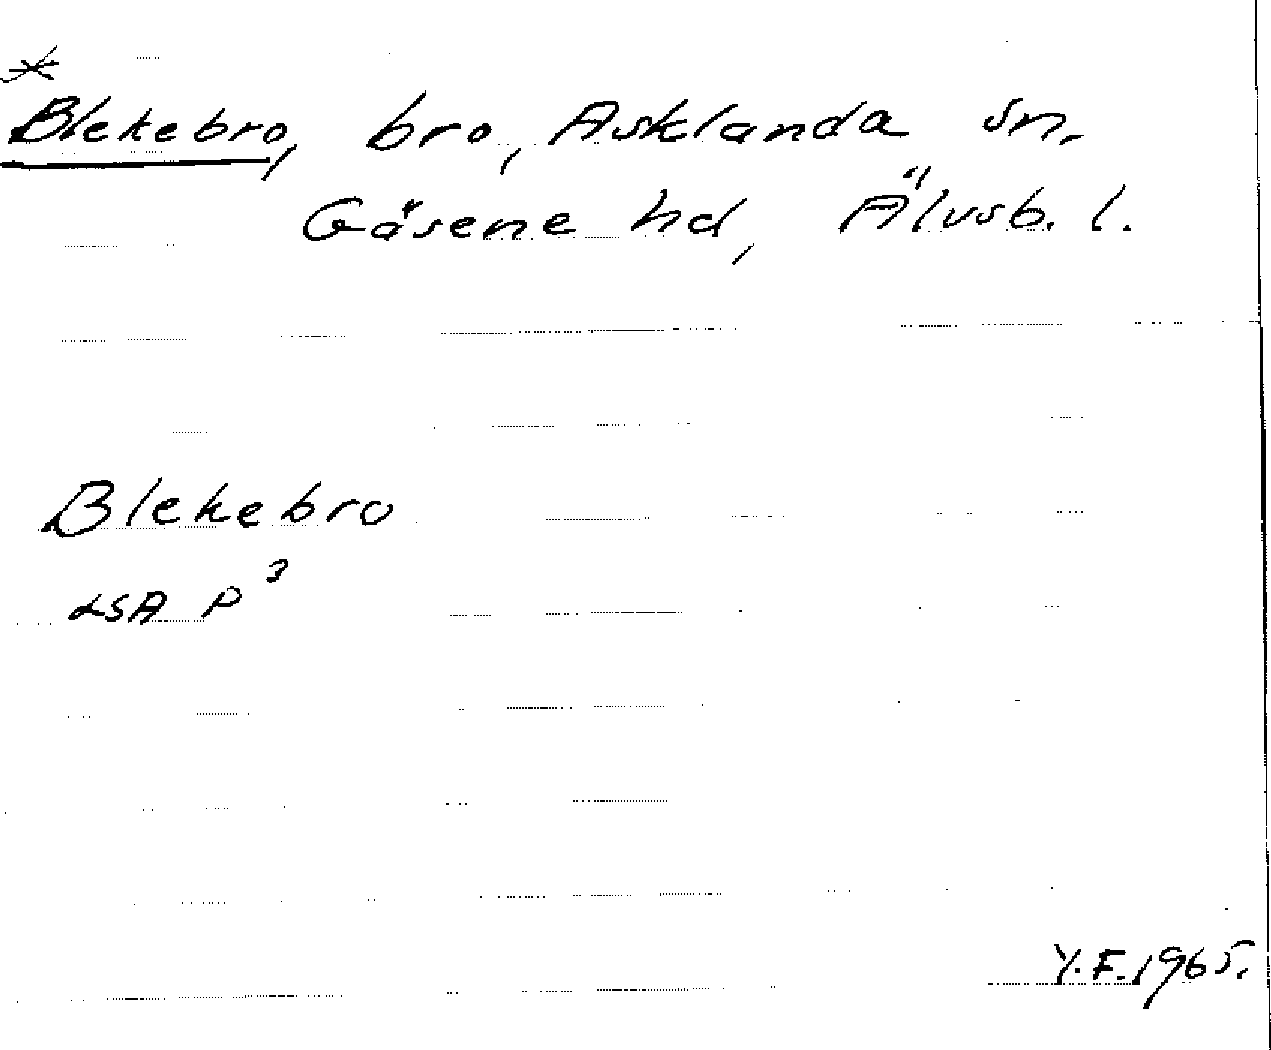 Blekebro, bro, Asklanda sn.
Gäsene hd, Älvsb. l.
Blekebro
LSA P³
Y.F. 1965.